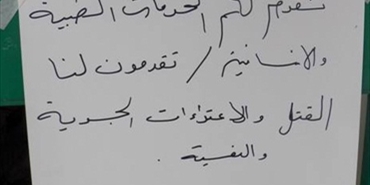 نقدم لكم الخدمات الطبية
والانسانية / تقدمون لنا
القتل والاعتداءات الجسدية
والنفسية .